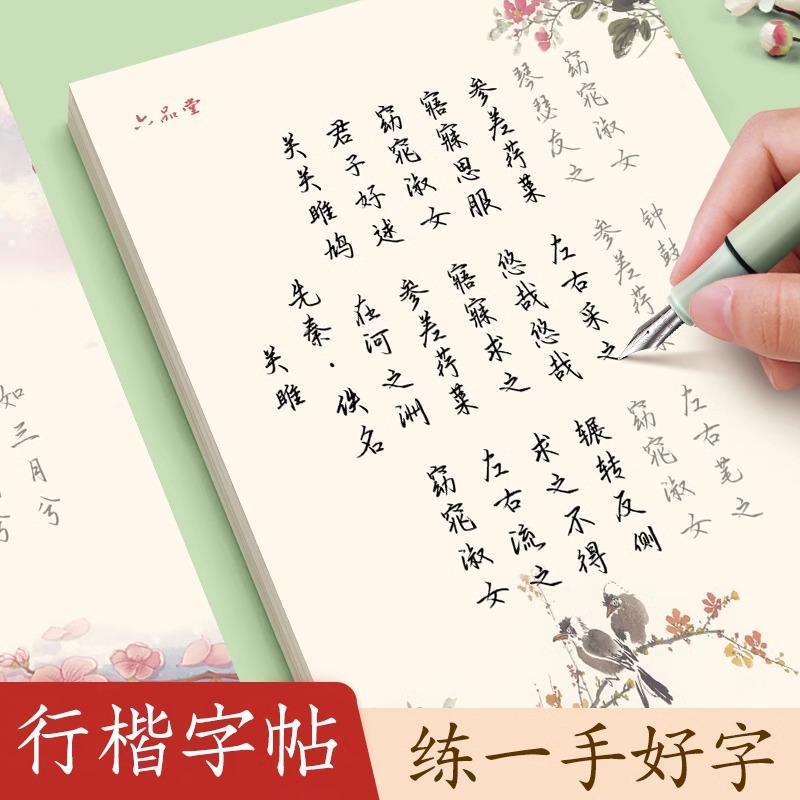 六品堂
关雎
先秦·佚名
关关雎鸠 在河之洲 窈窕淑女
君子好逑 参差荇菜 左右流之
窈窕淑女 寤寐求之 求之不得
寤寐思服 悠哉悠哉 辗转反侧
参差荇菜 左右采之 窈窕淑女
琴瑟友之 参差荇菜 左右芼之
窈窕淑女 钟鼓
如三月兮
行楷字帖
练一手好字